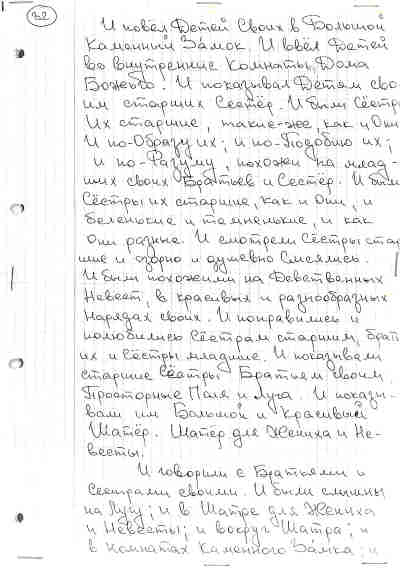 22
И повёл Детей Своих в Большой
Каменный Замок. И ввёл Детей
во внутренние Комнаты, Дома
Божьего. И показывал Детям сво-
им старших Сестёр. И были Сёстры
Их старшие, такие-же, как и Они
И по-Образу их; и по-Подобию их;
и по-Разуму, похожи на млад-
ших своих Братьев и Сестёр. И были
Сёстры их старшие, как и Они, и
беленькие и тёмненькие, и как
Они разные. И смотрели Сёстры стар-
шие и озорно и душевно Смеялись.
И были похожими на Девственных
Невест, в красивых и разнообразных
нарядах своих. И понравились и
полюбились Сёстрам старшим, Брать
их и Сёстры младшие. И показывали
старшие Сёстры Братьям своим
Просторные Поля и Луга. И показы-
вали им Большой и Красивый
Шатёр. Шатёр для Жениха и Не-
весты.
И говорили с Братьями и
Сёстрами своими. И были слышны
на Лугу; и в Шатре для Жениха
и Невесты; и вокруг Шатра; и
в комнатах Каменного Замка; и